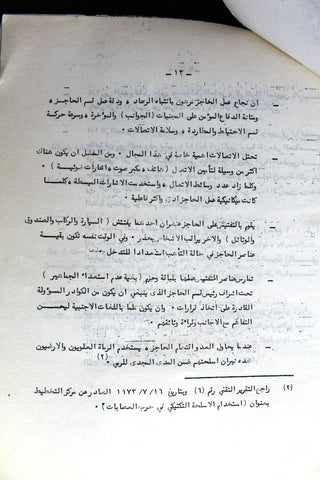 - ١٣ -
- ان نجاح عمل الحاجز مرهون باتقياء الرماد ه ودقة عمل قسم الحاجز ه
ومتانة الدفاع المؤمن على المجنبات ( الجوانب ) والمؤخرة ه وسرعة حركة
قسم الاحتياط والمطاردة ه وسلامة الاتصالات .
- تحتل الاتصالات اهمية خاصة في هذا المجال . ومن المفضل ان يكون هناك
اكثر من وسيلة لتأمين الاتصال ( هاتف ه مكبر صوت ه اشارات ضوئية )
وكلما زاد عدد وسائط الاتصال ه واستخدمت الاشارات البسيطة ه كلما
كانت ميكانيكية عمل الحاجز ادق واكثر فاعلية .
- يقوم بالتفتيش على الحاجز عنصران احدهما يفتش ( السيارة والركاب والصندوق
والوثائق ) والاخر يراقب الاشخاص بحذر . وفي الوقت نفسه تكون بقية
عناصر الحاجز في حالة التأهب استعدادا للتدخل .
- تمارس عناصر التفتيش عملها بلباقة وحزم ( بغية عدم استعداء الجماهير )
تحت اشراف رئيس قسم الحاجز الذي ينبغي ان يكون من الكوادر المسؤولة
القادرة على اتخاذ قرارات . وان يكون ملما باللغات الاجنبية ليحسن
التفاهم مع الاجانب وقراءة وثائقهم .
- عندما يحاول العدو اقتحام الحاجز ه يستخدم الرماة العلويون والارضيون
ضده نيران اسلحتهم ضمن المدى المجدي للرمي . (٢)
(٢) راجع التقرير التقني رقم (٦) وبتاريخ ١٩٧٣/٧/١٦ الصادر عن مركز التخطيط
بعنوان ( استخدام الاسلحة التكتيكي في حرب العصابات ) .